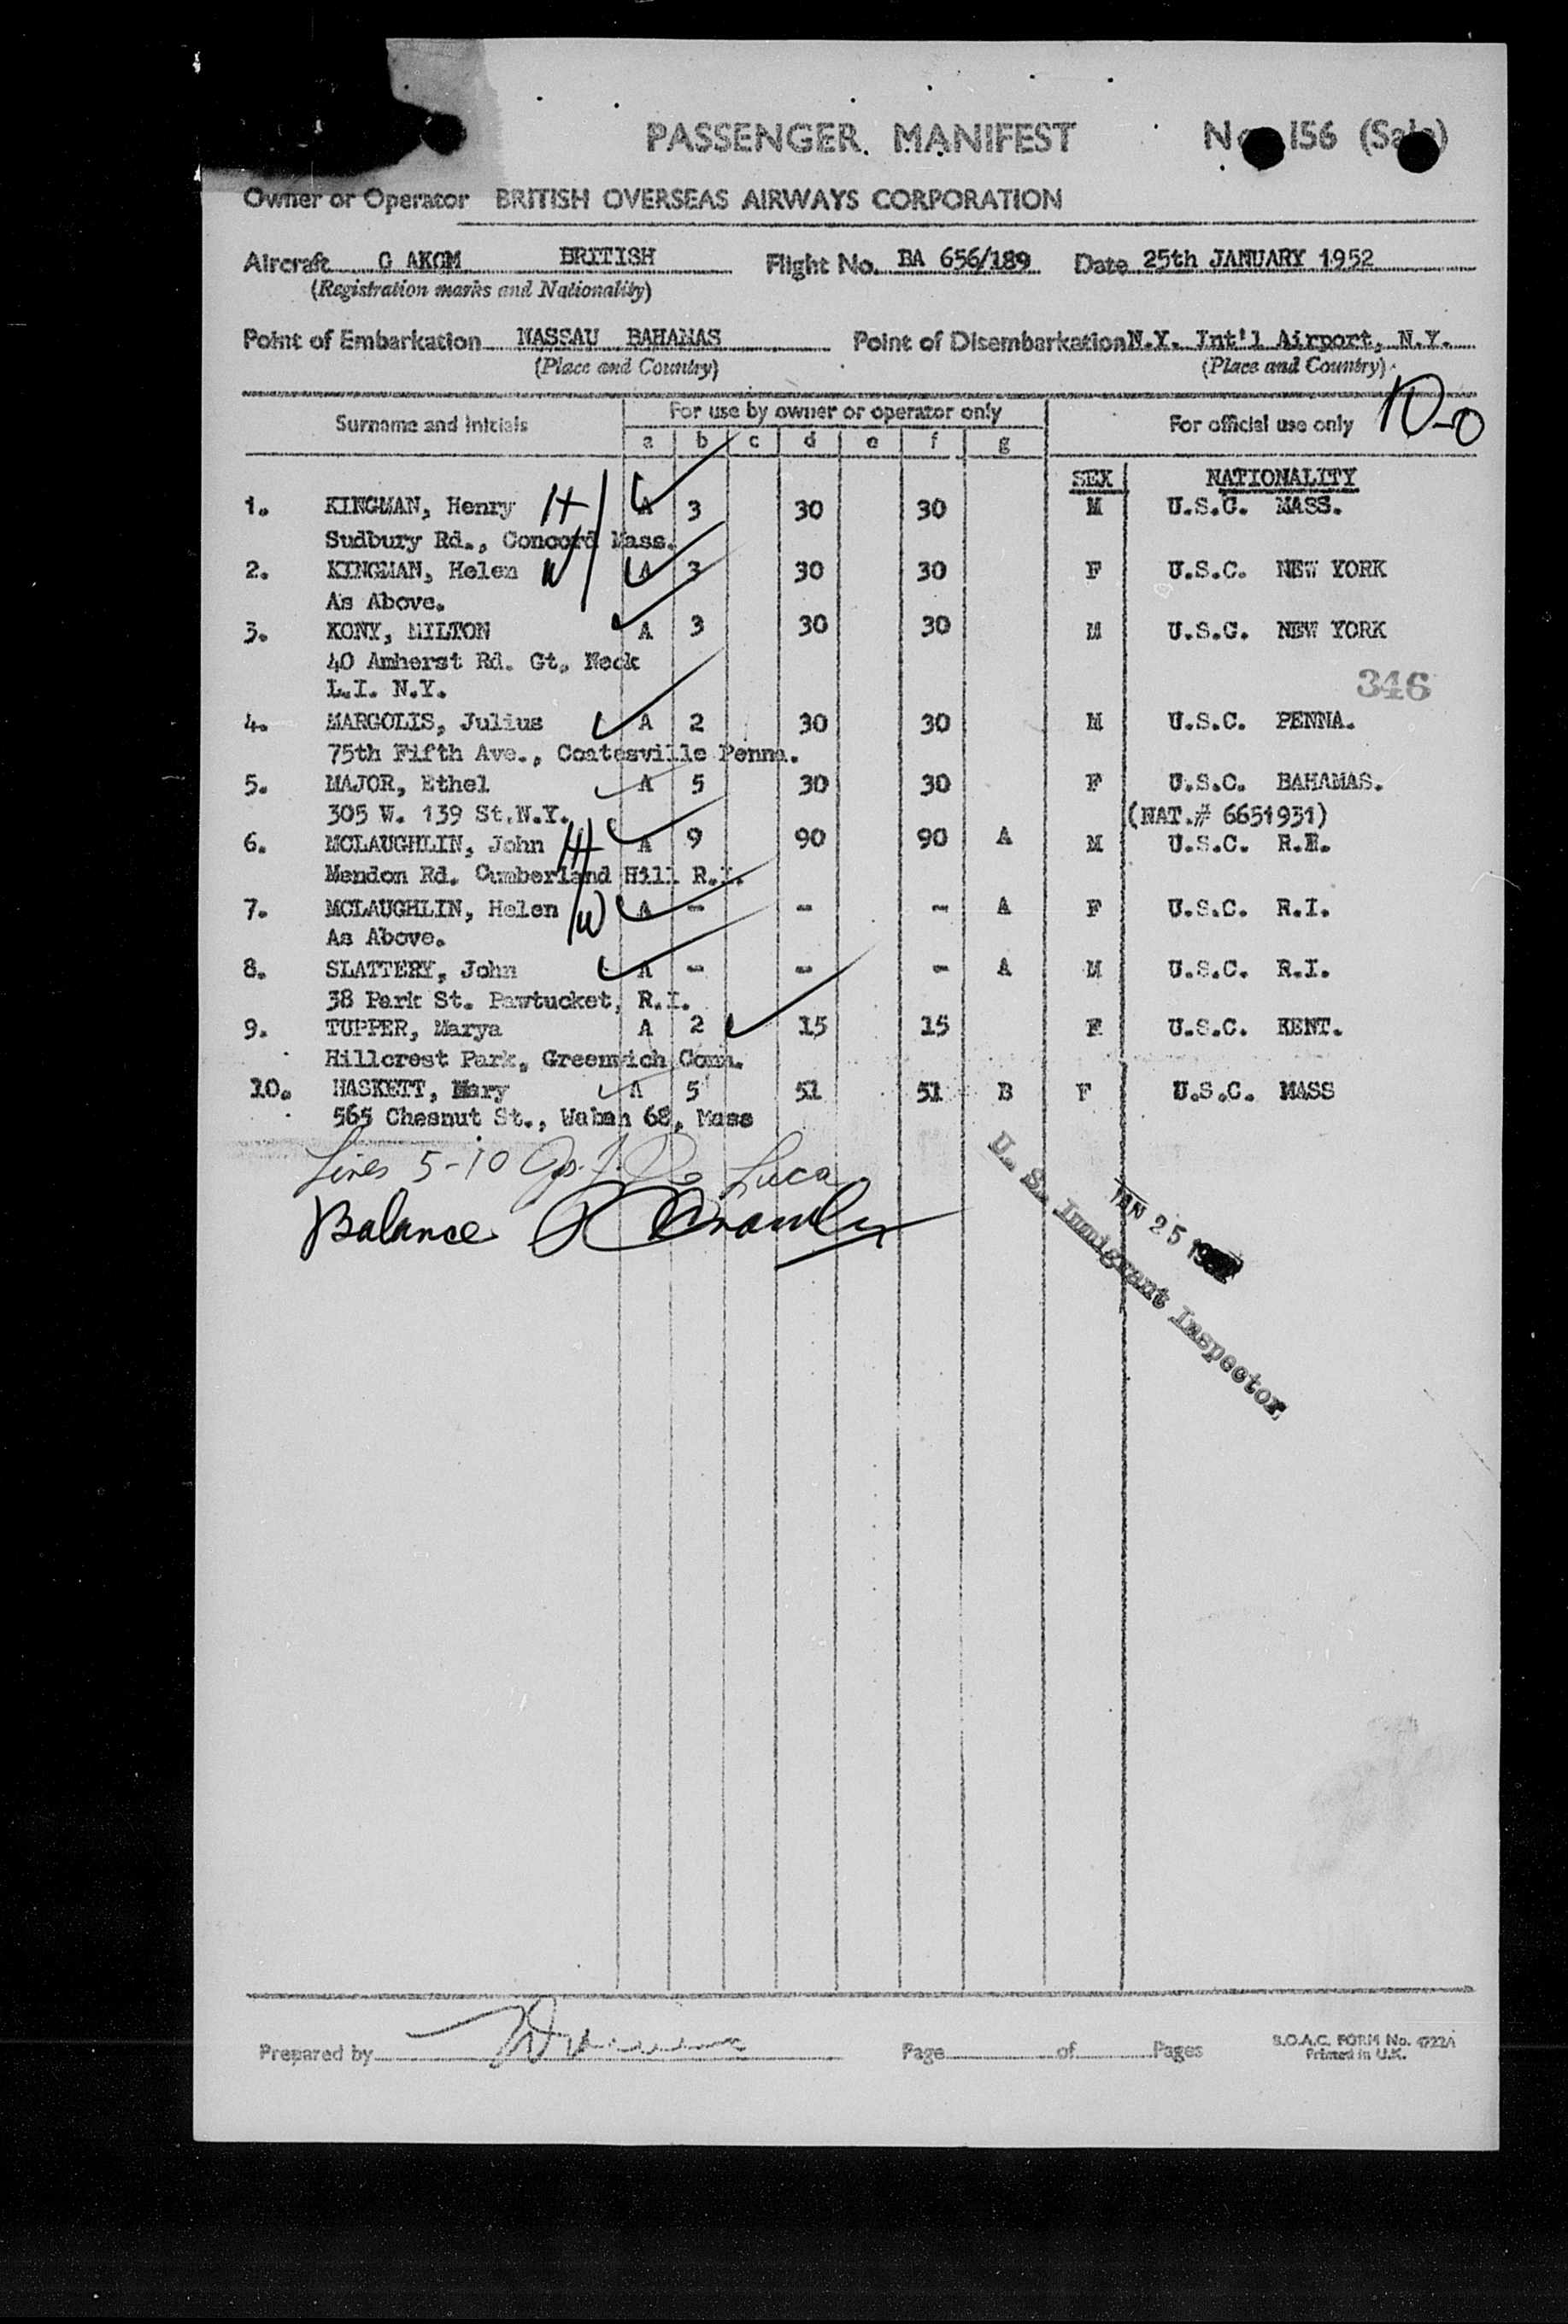 PASSENGER MANIFEST No 156 (Sale)
Owner or Operator BRITISH OVERSEAS AIRWAYS CORPORATION
Aircraft G AKGM BRITISH Flight No. BA 656/189 Date 25th JANUARY 1952
(Registration marks and Nationality)
Point of Embarkation NASSAU BAHAMAS Point of Disembarkation N.Y. Int'l Airport, N.Y.
(Place and Country) (Place and Country)
10-0
Surname and Initials For use by owner or operator only For official use only
a b c d e f g
SEX NATIONALITY
1. KINGMAN, Henry H A 3 30 30 M U.S.C. MASS.
Sudbury Rd., Concord Mass.
2. KINGMAN, Helen W A 3 30 30 F U.S.C. NEW YORK
As Above.
3. KONY, MILTON A 3 30 30 M U.S.C. NEW YORK
40 Amherst Rd. Gt. Neck
L.I. N.Y.
346
4. MARGOLIS, Julius A 2 30 30 M U.S.C. PENNA.
75th Fifth Ave., Coatesville Penna.
5. MAJOR, Ethel A 5 30 30 F U.S.C. BAHAMAS.
305 W. 139 St.N.Y. (NAT.# 6651951)
6. MCLAUGHLIN, John H A 9 90 90 A M U.S.C. R.I.
Mendon Rd. Cumberland Hill R.I.
7. MCLAUGHLIN, Helen W A - - - A F U.S.C. R.I.
As Above.
8. SLATTERY, John A - - - A M U.S.C. R.I.
38 Park St. Pawtucket, R.I.
9. TUPPER, Marya A 2 15 15 F U.S.C. KENT.
Hillcrest Park, Greenwich Conn.
10. HASKETT, Mary A 5 51 51 B F U.S.C. MASS
565 Chesnut St., Waban 68, Mass
Lines 5-10 De Luca
Balance
JAN 25 1952
U. S. Immigrant Inspector
Prepared by Page of Pages
B.O.A.C. FORM No. 4722A
Printed in U.K.